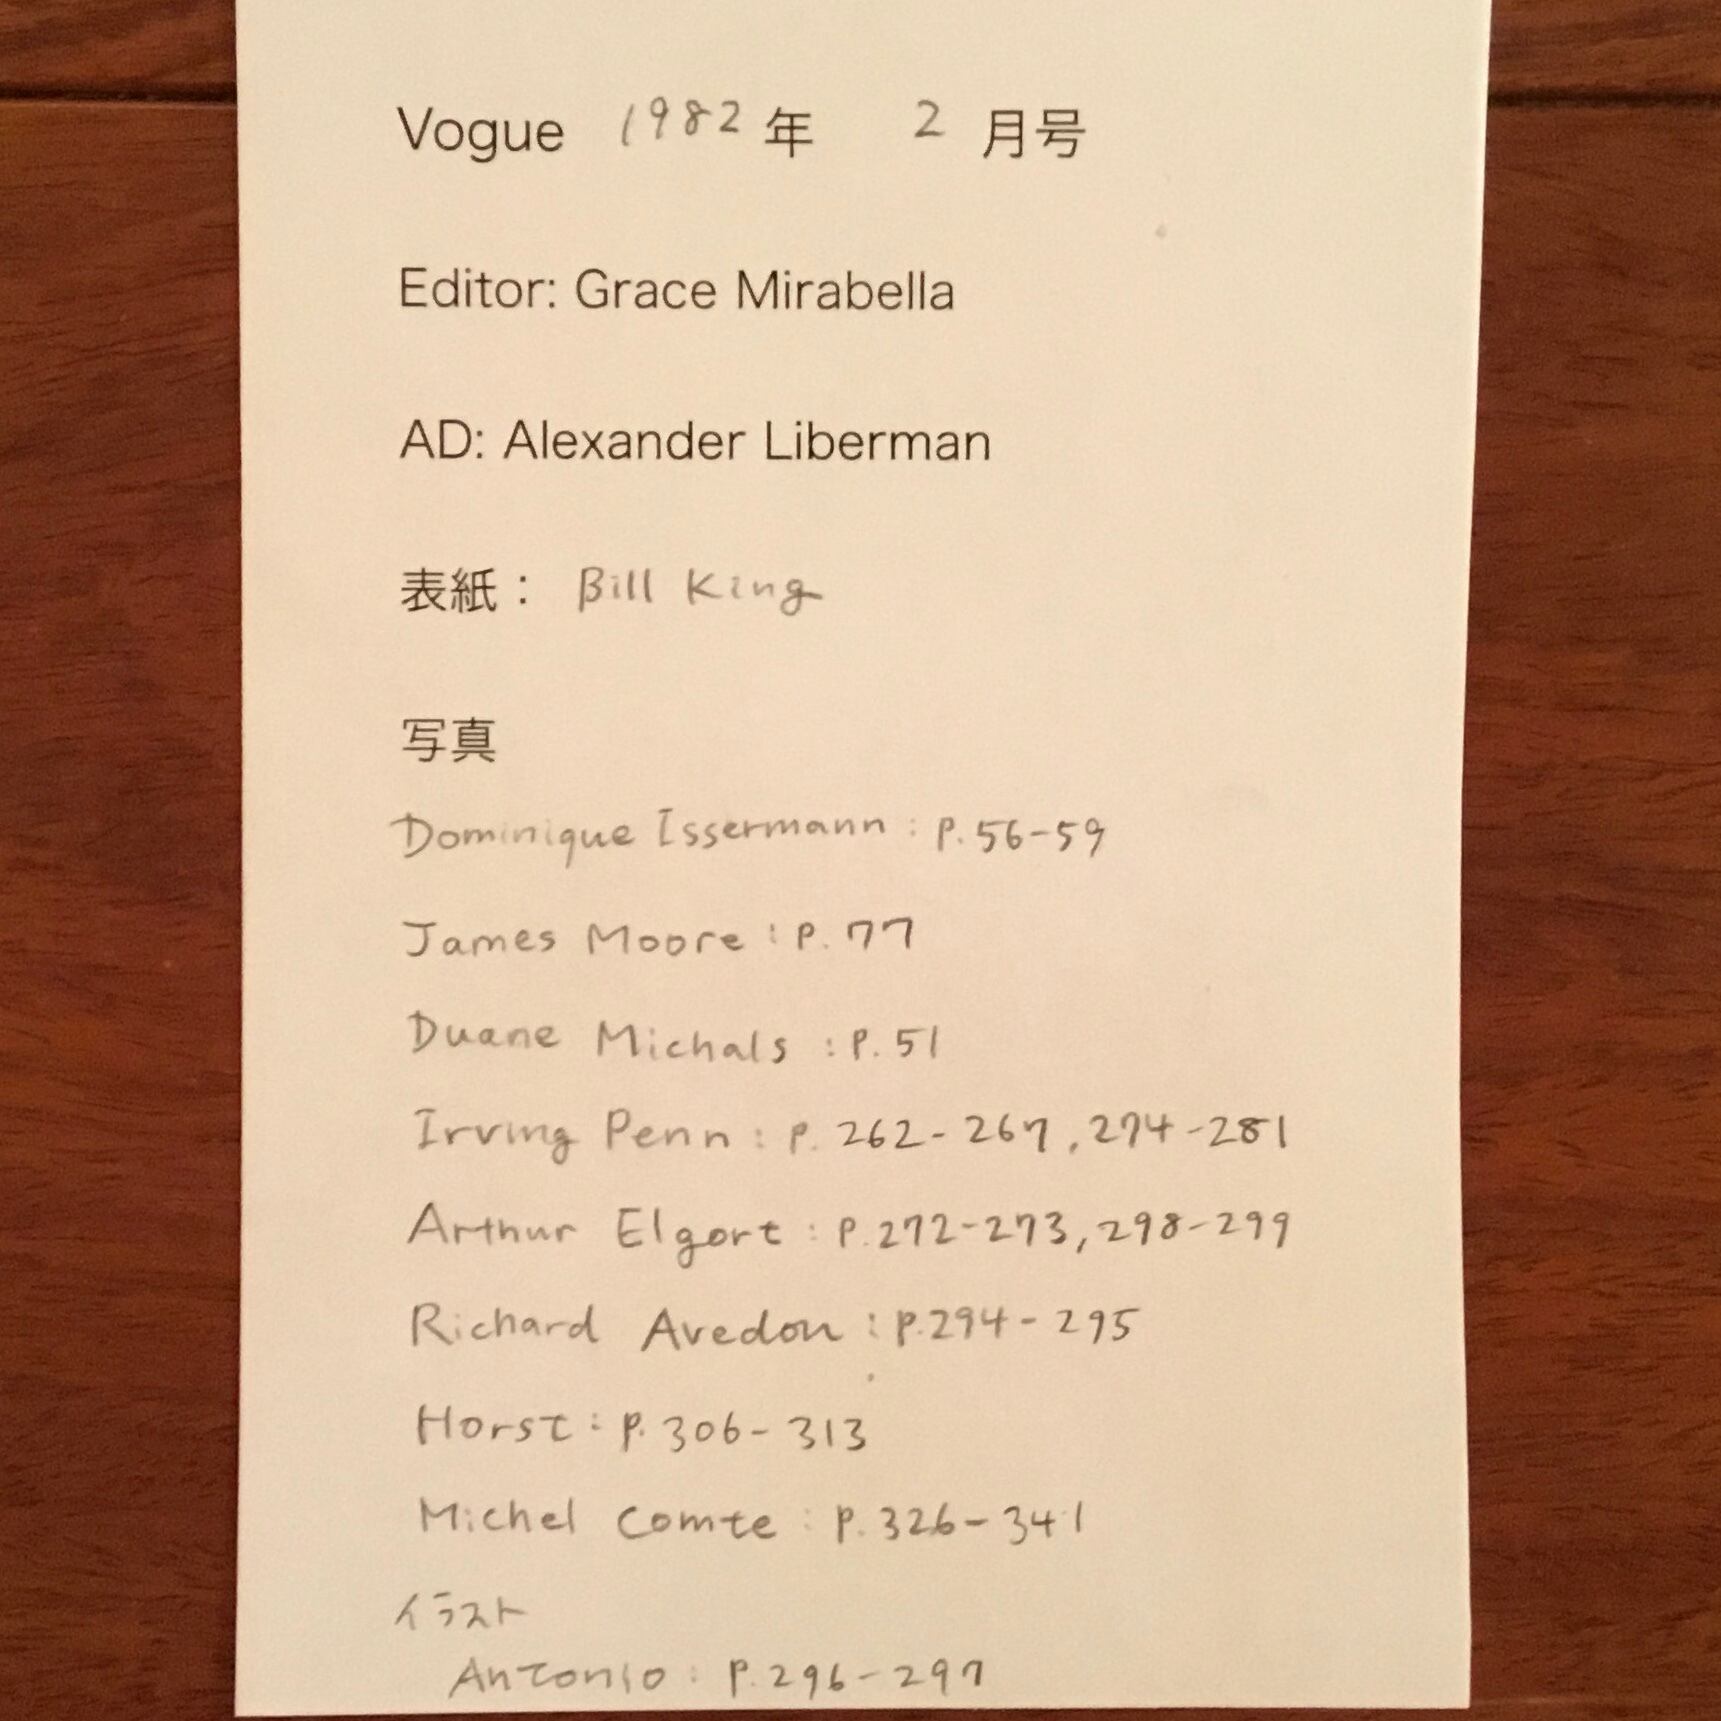 Vogue 1982年 2月号
Editor: Grace Mirabella
AD: Alexander Liberman
表紙： Bill King
写真
Dominique Issermann : P.56-59
James Moore : P.77
Duane Michals : P.51
Irving Penn : P. 262-267, 274-281
Arthur Elgort : P.272-273, 298-299
Richard Avedon : P.294-295
Horst : P.306-313
Michel Comte : P.326-341
イラスト
Antonio : P.296-297